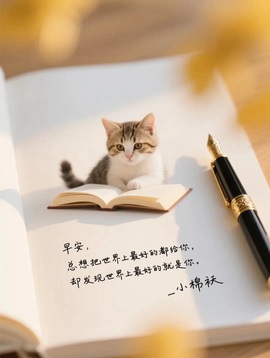 早安，
总想把世界上最好的都给你，
却发现世界上最好的就是你。
—小棉袄